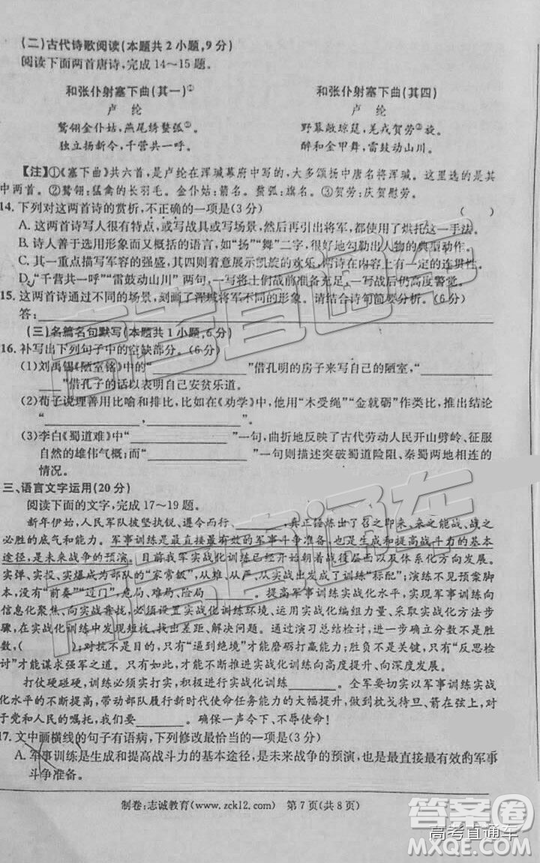 (二)古代诗歌阅读(本题共2小题,9分)
阅读下面两首唐诗,完成14~15题。
和张仆射塞下曲(其一)① 和张仆射塞下曲(其四)
卢纶 卢纶
鹫翎金仆姑,燕尾绣蝥弧②。 野幕敞琼筵,羌戎贺劳③旋。
独立扬新令,千营共一呼。 醉和金甲舞,雷鼓动山川。
【注】①《塞下曲》共六首,是卢纶在浑瑊幕府中写的,大多颂扬中唐名将浑瑊。这里选的是其
中两首。②鹫翎:猛禽的长羽毛。金仆姑:箭名。蝥弧:旗名。③贺劳:庆贺慰劳。
14.下列对这两首诗的赏析,不正确的一项是(3分) ( )
A.这两首诗写人很有特点,或写战具或写场景,然后引出将军,都使用了烘托这一手法。
B.诗人善于选用形象而又质朴的语言,如“扬”“舞”二字,很好地勾勒出人物的典型动作。
C.其一重写将军的坚强、威严,其四则着意展示凯旋的欢乐,两首在内容上有一定的连贯性。
D.“千营共一呼”“雷鼓动山川”两句,一写出征战前准备充足,一写战后仍高度警觉。
15.这两首诗通过不同的场景,刻画了浑瑊将军不同的形象。请结合诗句简要分析。(6分)
答:
(三)名篇名句默写(本题共1小题,6分)
16.补写出下列句子中的空缺部分。(6分)
(1)刘禹锡《陋室铭》中的“ ”借孔明的房子来写自己的陋室,“
”借孔子的话以表明自己安贫乐道。
(2)荀子说理善用比喻或类比,比如在《劝学》中,他用“木受绳”“金就砺”作类比,推出结论
“ , ”。
(3)李白《蜀道难》中“ , ”一句,曲折地反映了古代劳动人民开山劈岭、征服
自然的雄伟气概;也表现了跟五丁开山有关的蜀道开始出现的局面、秦蜀两地的联系。
三、语言文字运用(20分)
阅读下面的文字,完成17~19题。
新年伊始,人民军队披坚执锐、遵令而行, 展示了召之即来、来之能战、战之
必胜的底气和能力。军事训练是最直接最有效的军事斗争准备,也是生成和提高战斗力的基本
途径,是未来战争的预演。目前我军实战化训练已经开始走向以法治化体系化方向发展。
实案、实爆成为部队的“家常饭”,从难、从严、 成了训练“标配”;演练不见预案脚
本,没有“前奏”“过门”,危局、难局、险局 。提高军事训练实战化水平,要求军事训练向
信息化聚焦、向实战化靠拢,要求必须设置实战化环境,运用实战化编组力量,采取实战化方法
手段,在实战化训练中发现问题、找出差距、解决问题。演习总结检讨,进一步由分数管理(数
数),( )。对抗演练不能满足于“逼到绝境”“逼出绝招”打赢打漂亮,只有“反思检
讨”才能谋求强军之道。
打仗硬碰硬,训练必须实打实,积极 实战化训练 ,必须坚持全面提高军事训练实战
化水平的不断提高,带动部队履行新时代使命任务能力的大幅提升,箭在弦上引而待发。只要
党和人民需要,我们的军队 ,确保招之即来、来之能战、战之必胜。
17.文中画横线的句子有语病,下列修改最恰当的一项是(3分)
A.军事训练是生成和提高战斗力的基本途径,是未来战争的预演,也是最直接最有效的军事
斗争准备。
制卷:志诚教育(www.zck12.com) 第7页(共8页)
高考直通车
答案圈